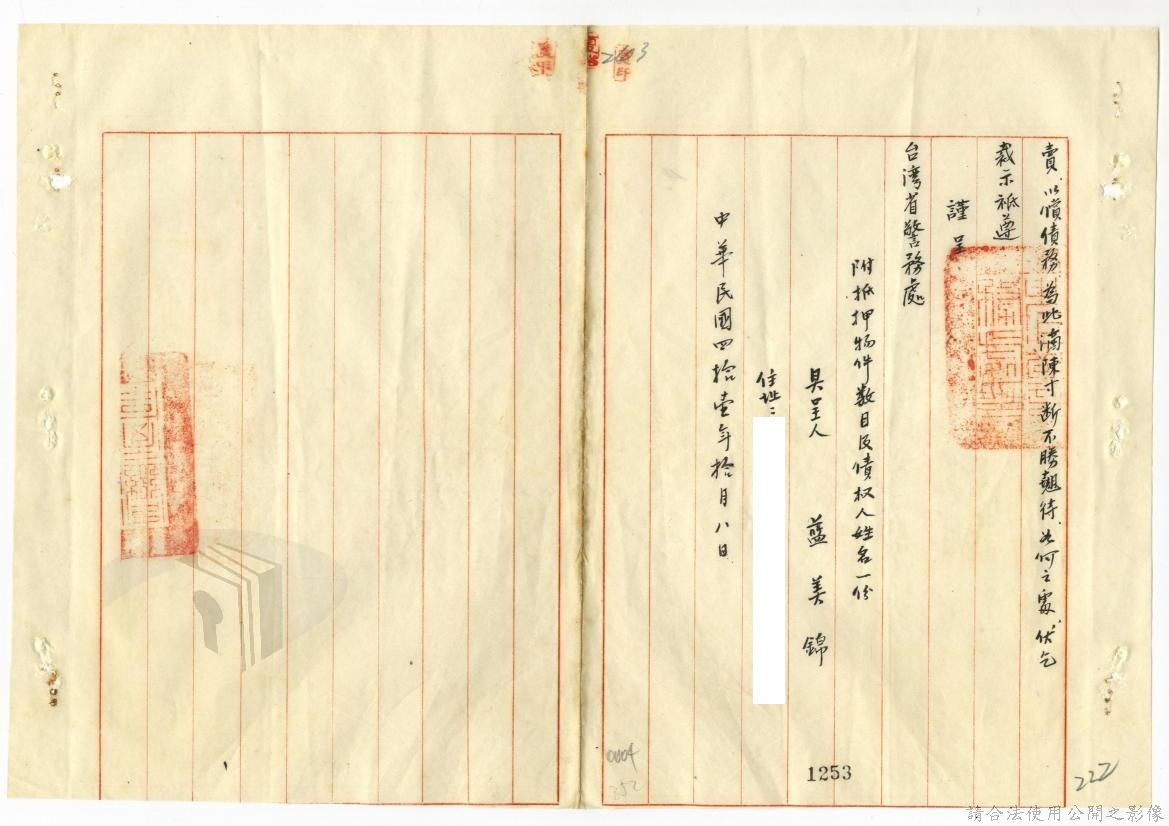 賣、以償債務、為此瀝陳寸斷不勝翹待、如何之處、伏乞
裁示祇遵
謹呈
台湾省警務處
附抵押物件数目及債权人姓名一份
具呈人 藍美錦
住址：
中華民國四拾壹年拾月八日
1253
222
0004
352
請合法使用公開之影像